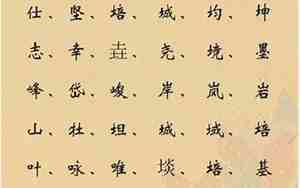 仕、坚、培、城、均、坤
志、幸、壵、尧、境、墨
峰、岱、峻、岸、岚、岩
山、壮、坦、城、域、培
叶、咏、唯、埮、培、基